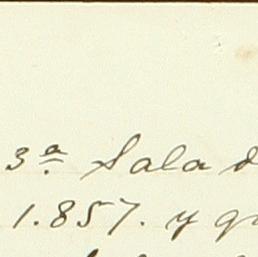 3ª Sala d
1.857. y qu